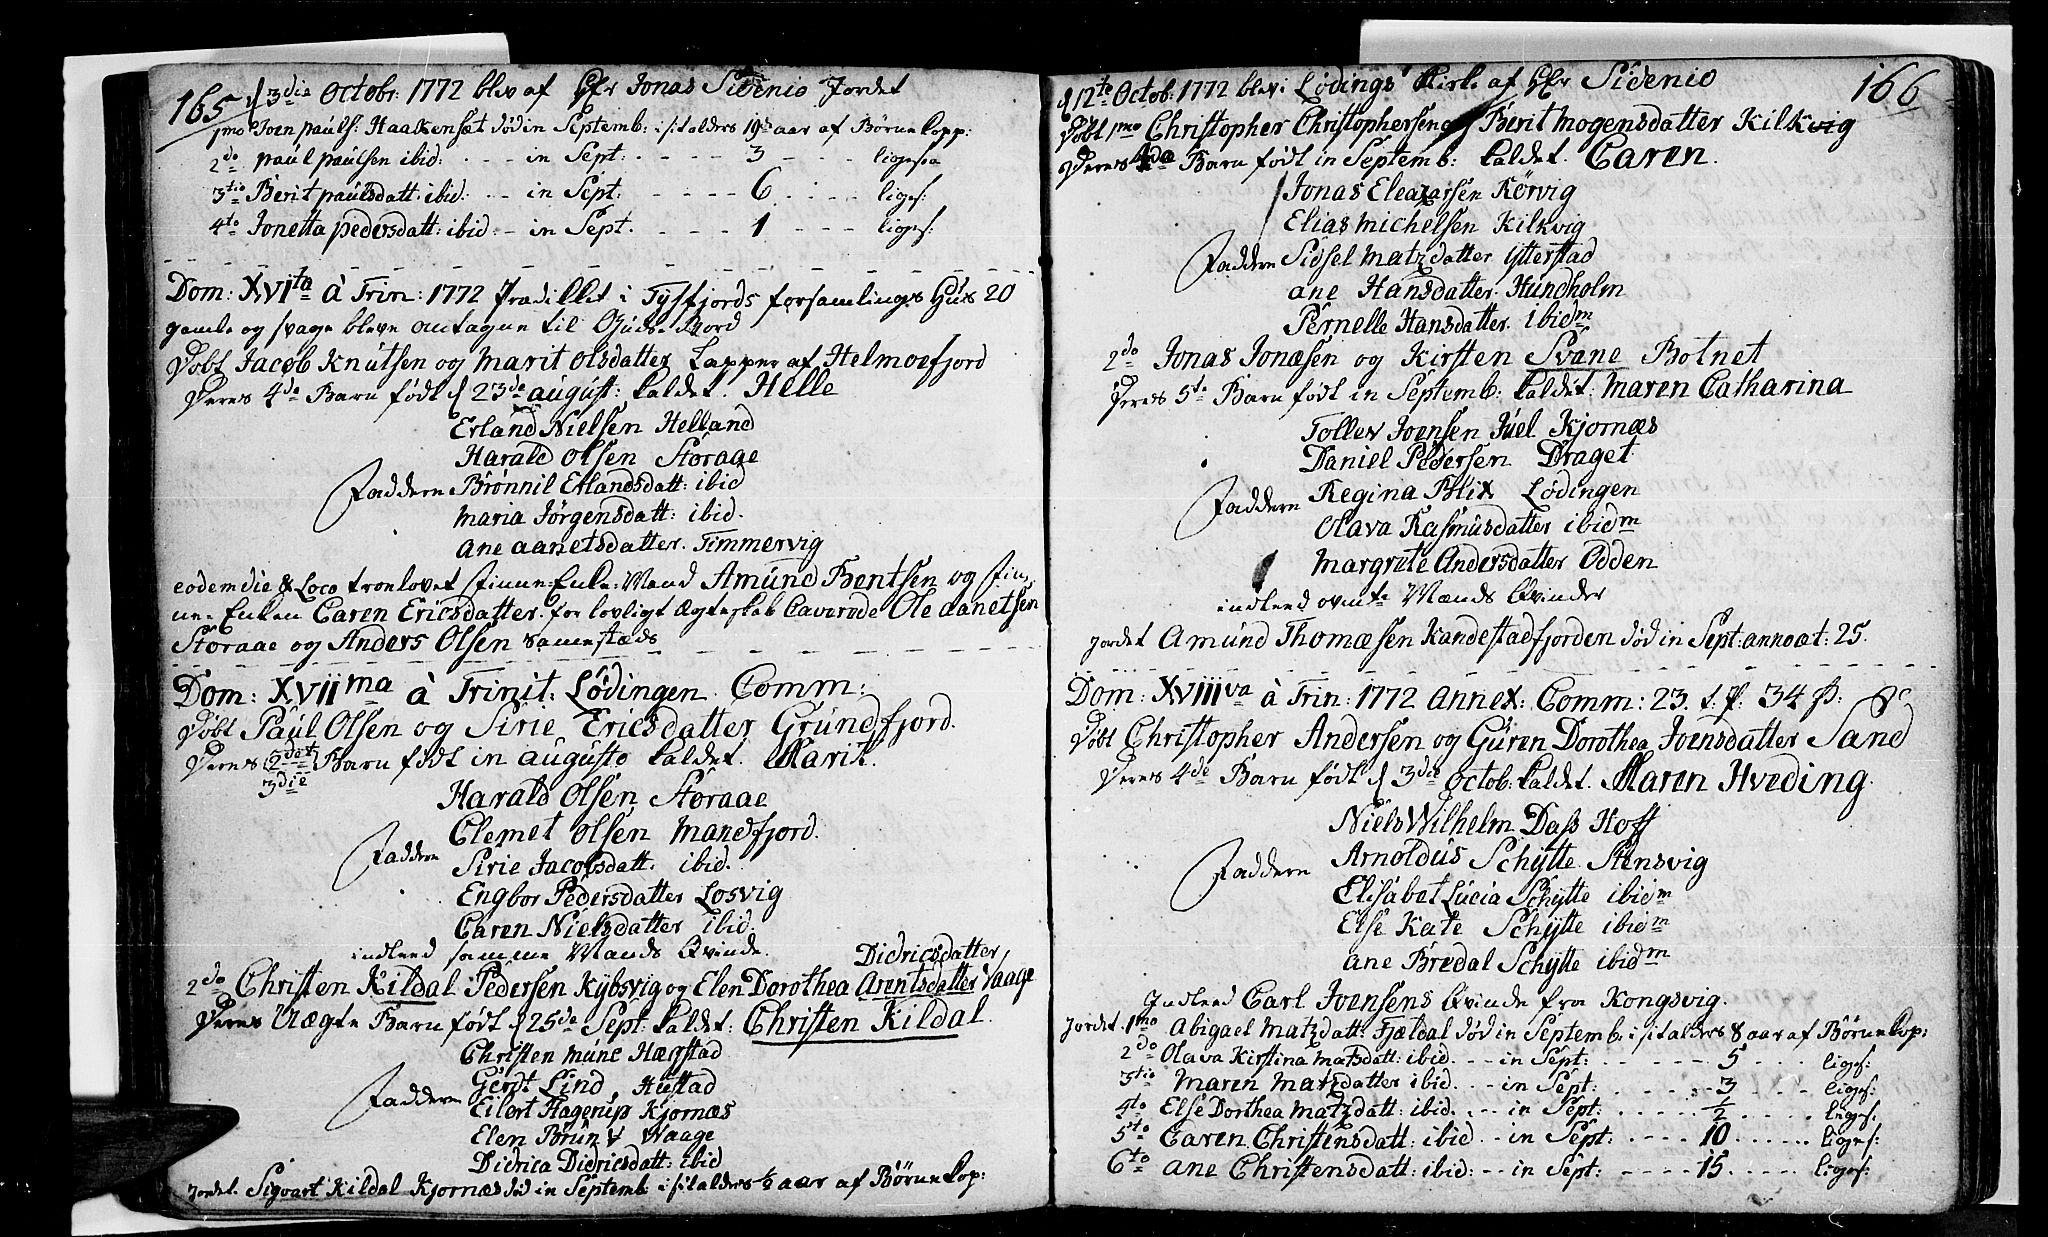 165
d 3die Octobr: 1772 blev af Hr Jonas Sidenio Jordet
1mo Joen Pauls: Haakensæt død in Septemb: i sit alders 19de aar af Børnekopp:
2do Paul Paulsen ibid: - - - in Sept: - - - - 3 - - - ligesaa
3tio Berit Paulsdatt: ibid: - - - in Sept: - - - - 6 - - - ligef:
4to Jonetta Pedersdatt: ibid - - in Sept. - - - - 1 - - - ligef:
Dom: XVIta à Trin: 1772 Prædiket i Tysfjords forsamlings Huus 20
gamle og svage bleve antagne til Guds Bord
Døbt Jacob Knutsen og Marit Olsdatter Lapper af Helmoefjord
Deres 4de Barn født d 23de august: kaldet. Helle
Erland Nielsen Helland
Harald Olsen Storaae
Faddere Brønnil Erlandsdatt: ibid
Maria Jørgensdatt: ibid.
Ane Aanetsdatter. Timmervig
eodem die & Loco troelovet Finne-Enke-Mand Amund Bentsen og Fin-
ne-Enken Caren Ericsdatter. for lovligt Ægteskab Caverede Ole Aanetsen
Storaae og Anders Olsen samestæds
Dom: XVIIma à Trinit: Lødingen Comm:
Døbt Paul Olsen og Sirie Ericsdatter Grundfjord.
Deres 2det Barn født in augusto kaldet. Marit.
3die
Harald Olsen Storaae
Clemet Olsen Mandfjord.
Faddere
Sirie Jacobsdatt: ibid.
Engbor Pedersdatter Losvig
Caren Nielsdatter ibid.
indleed samme Mands Qvinde.
Didricsdatter
2do Christen Kildal Pedersen Kybsvig og Elen Dorothea Arentsdatter Vaage
Deres Uægte Barn født d 25de Sept: kaldet: Christen Kildal.
Christen Munc Hægstad
Gerdt Lind Hustad
Faddere
Eilert Hagerup Kjornæs
Elen Brun Waage
Didrica Didricsdatt: ibid
Jordet. Sigvart Kildal Kjornæs død in Septemb i sit alders ½ aar af Børnekop:
166
d 12te Octob: 1772 blev i Lødings Kirke af Hr Sidenio
Døbt 1mo Christopher Christophersen og Berit Mogensdatter Kilkvig
Deres 4de Barn født in Septemb: kaldet. Caren.
Jonas Eleazarsen Rørvig
Elias Michelsen Kilkvig
Faddere Sidsel Matzdatter Ytterstad
Ane Hansdatter Hundholm
Pernelle Hansdatter. ibidm
2do Jonas Jonæsen og Kirsten Svane Botnet
Deres 5te Barn født in Septemb: kaldet: Maren Catharina
Tollev Joensen Juel Kjornæs
Daniel Pedersen Draget
Faddere Regina Blix Lødingen
Olava Rasmusdatter ibidm
Margrete Andersdatter Odden
indleed ovente Mænds Qvinder
Jordet Amund Thomæsen Kandestadfjorden død in Sept: anno æt: 25.
Dom: XVIIIva à Trin: 1772 Annex: Comm: 23.
Døbt Christopher Andersen og Guren Dorothea Joensdatter Sand
Deres 4de Barn født d 3die Octob: kaldet. Maren Hveding.
Niels Wilhelm Dass Hoff
Arnoldus Schytte Stensvig
Faddere
Elisabet Lucia Schytte ibidm
Else Kate Schytte ibidm
Ane Bredal Schytte ibidm
Indleed Carl Joensens Qvinde fra Kongsvig.
Jordet. 1mo Abigael Matzdatt: Fjældal død in Septemb: i sit alders 8 aar af Børnekop:
2do Olava Kirstina Matsdatt: ibid. - - in Sept: - - - - 5 - - - ligef:
3tio Maren Matzdatter ibid. - - - in Sept: - - - - 3 - - - ligef:
4to Else Dorthea Matzdatt: ibid. - - in Sept: - - - - ½ - - - ligef:
5to Caren Christensdatt: ibid - - in Sept: - - - - 10 - - - ligef:
6to Ane Christensdatt: ibid: - - in Sept: - - - - 15 - - - ligef: